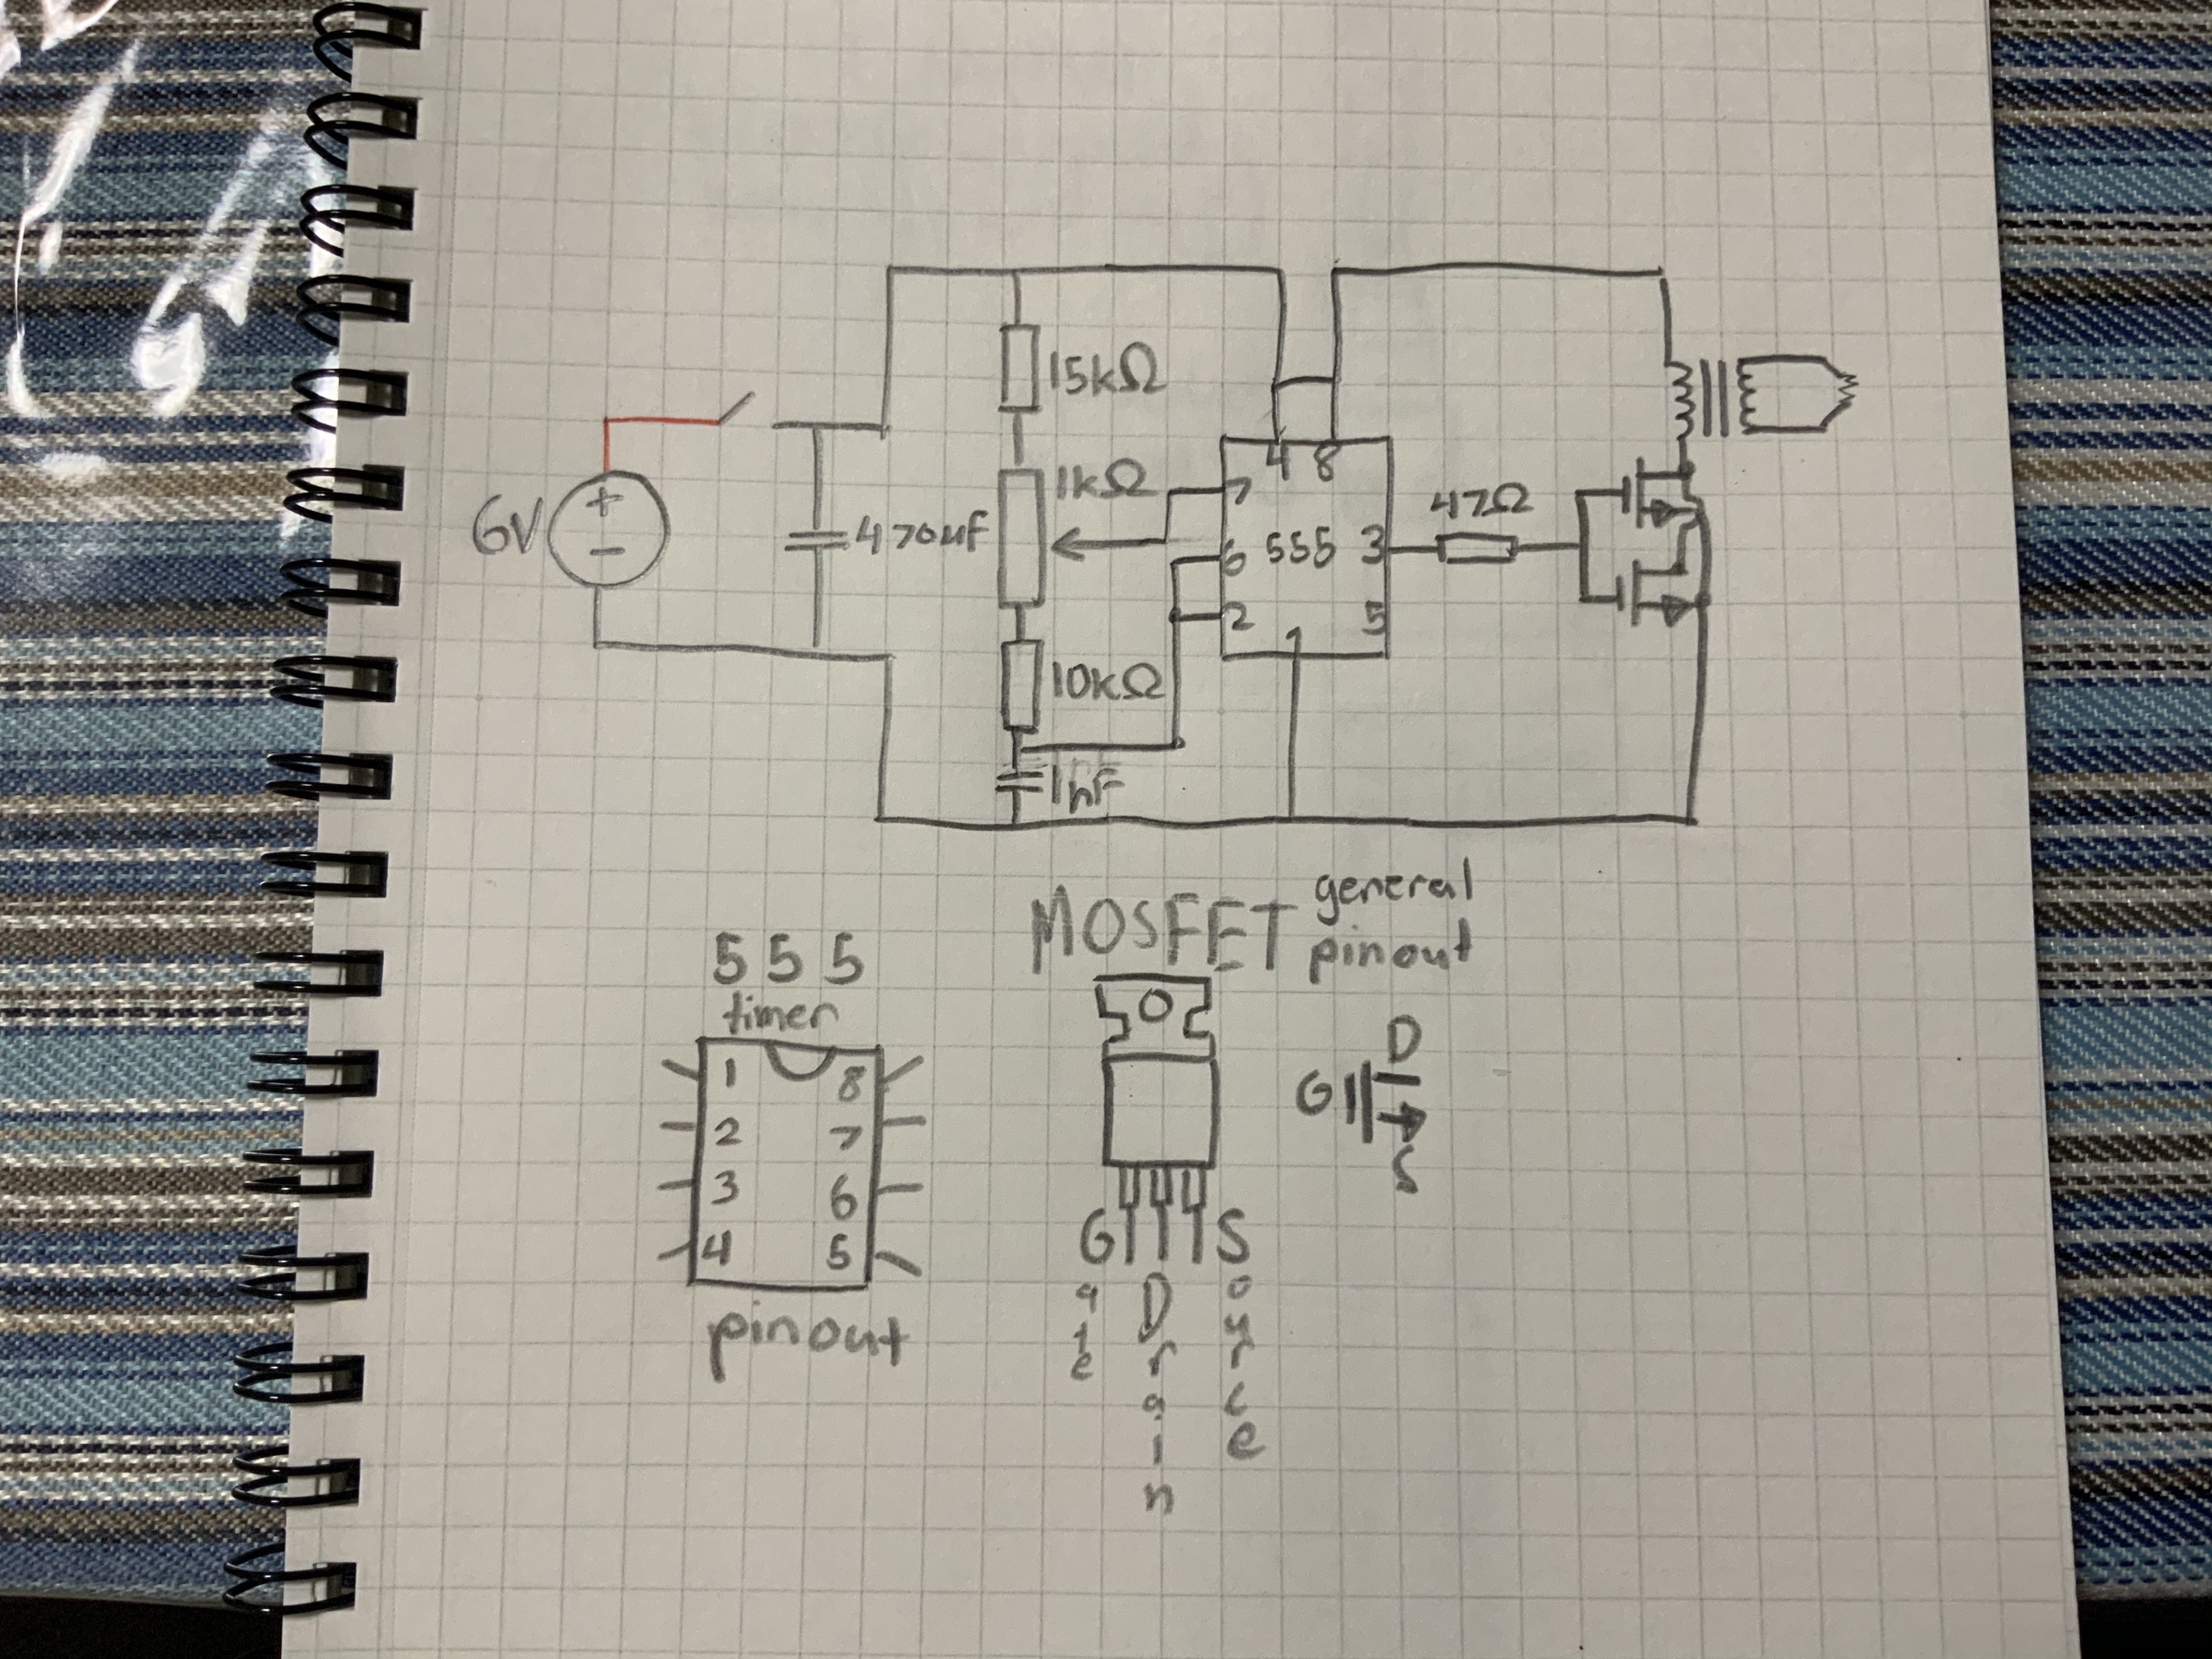 6V
470uF
15kΩ
1kΩ
10kΩ
1nF
4 8
7
6 555 3
2 5
1
47Ω
555
timer
1 8
2 7
3 6
4 5
pinout
MOSFET general
pinout
G S
Gate
Drain
Source
D
G
S